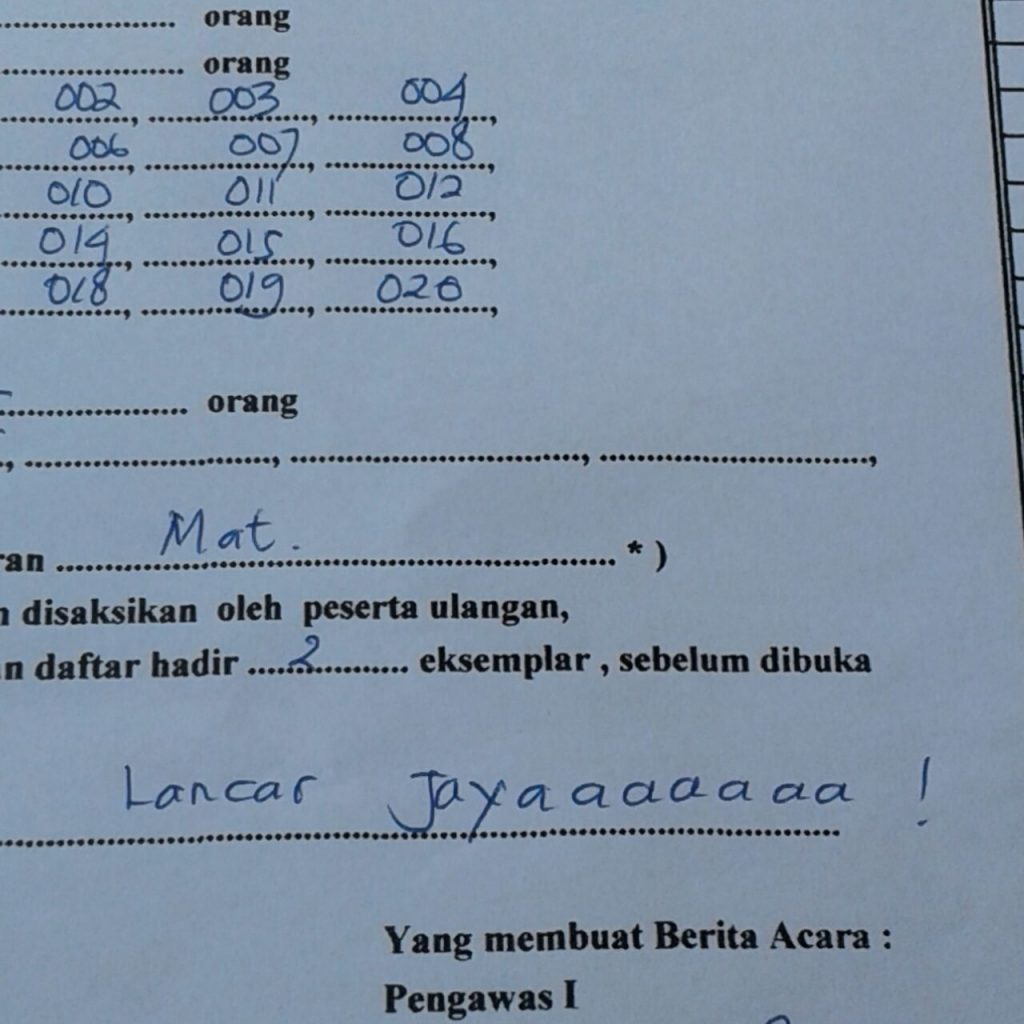 .................... orang
.................... orang
002, 003, 004,
006, 007, 008,
010, 011, 012,
014, 015, 016,
018, 019, 020,
.................... orang
, ...................., ...................., ....................,
ran ........ Mat. ........ * )
n disaksikan oleh peserta ulangan,
n daftar hadir ....2.... eksemplar , sebelum dibuka
Lancar Jayaaaaaaa !
Yang membuat Berita Acara :
Pengawas I